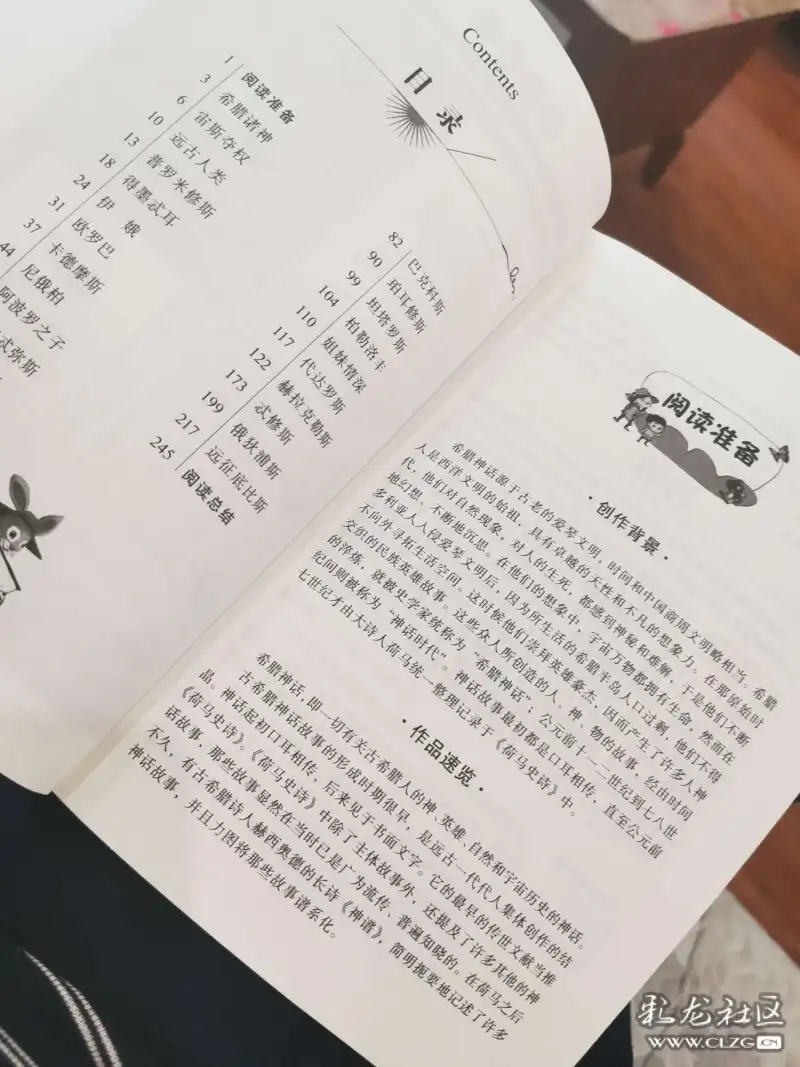 Contents
目录
1 阅读准备
3 希腊诸神
6 宙斯夺权
10 远古人类
13 普罗米修斯
18 得墨忒耳
24 伊 娥
31 欧罗巴
37 卡德摩斯
44 尼俄柏
阿波罗之子
忒弥斯
82 巴克科斯
90 珀耳修斯
99 坦塔罗斯
104 柏勒洛卡
110 姐妹情深
117 代达罗斯
122 赫拉克勒斯
173 忒修斯
199 俄狄浦斯
217 远征底比斯
245 阅读总结
阅读准备
·创作背景·
希腊神话源于古老的爱琴文明，时间和中国商周文明略相当。希腊
人是西洋文明的始祖，具有卓越的天性和不凡的想象力。在那原始时
代，他们对自然现象，对人的生死，都感到神秘和难解，于是他们不断
地幻想、不断地沉思。在他们的想象中，宇宙万物都拥有生命。然而在
多利亚人入侵爱琴文明后，因为所生活的希腊半岛人口过剩，他们不得
不向外寻拓生活空间。这时候他们崇拜英雄豪杰，因而产生了许多人神
交织的民族英雄故事。这些众人所创造的人、神、物的故事，经由时间
的淬炼，就被史学家统称为“希腊神话”；公元前十一二世纪到七八世
纪间则被称为“神话时代”。神话故事最初都是口耳相传，直至公元前
七世纪才由大诗人荷马统一整理记录于《荷马史诗》中。
·作品速览·
希腊神话，即一切有关古希腊人的神、英雄、自然和宇宙历史的神话。
古希腊神话故事的形成时期很早，是远古一代代人集体创作的结
晶。神话起初口耳相传，后来见于书面文字。它的最早的传世文献当推
《荷马史诗》。《荷马史诗》中除了主体故事外，还提及了许多其他的神
话故事，那些故事显然在当时已是广为流传、普遍知晓的。在荷马之后
不久，有古希腊诗人赫西奥德的长诗《神谱》，简明扼要地记述了许多
神话故事，并且力图将那些故事谱系化。
乳龙社区
WWW.CLZG.CN